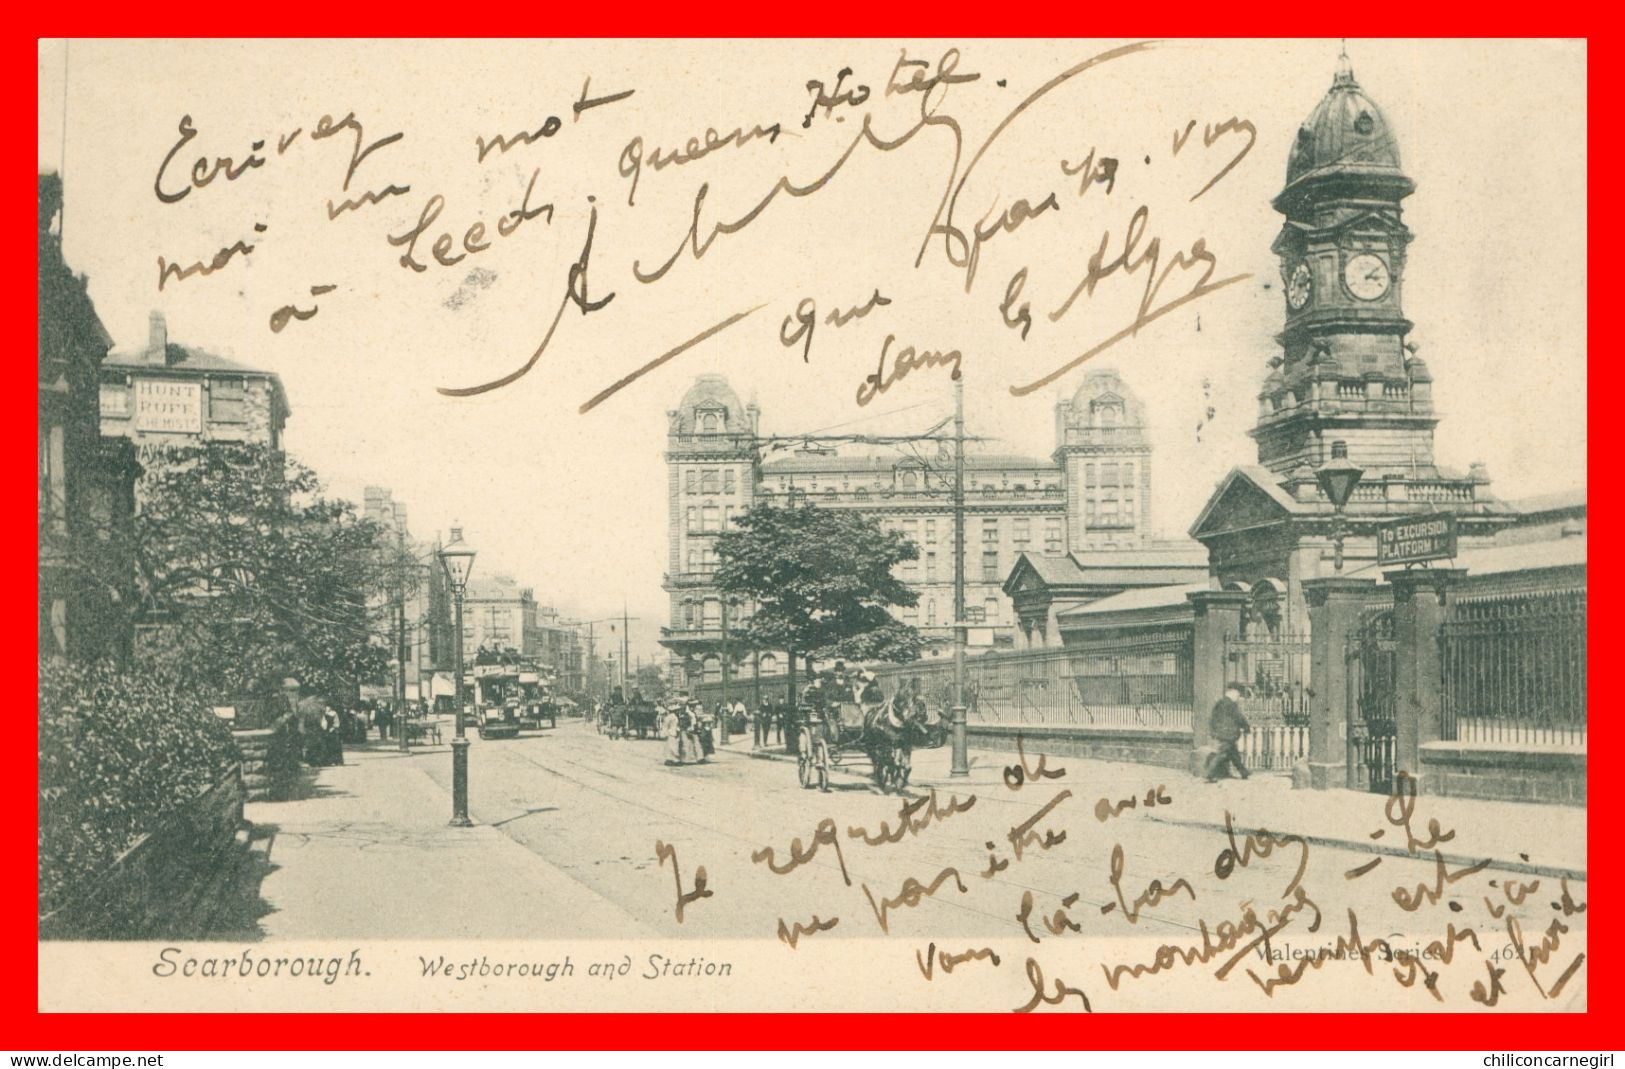 Ecrivez
moi un mot
à Leeds. Queens Hotel.
que faites-vous
dans les Alpes
HUNT
CHEMISTS
To EXCURSION
PLATFORM
Je regrette de
ne pas être avec
vous là-bas dans
les montagnes - Le
temps est
gris ici
et froid
Scarborough. Westborough and Station
Valentines Series
delcampe.net
chiliconcarnegirl